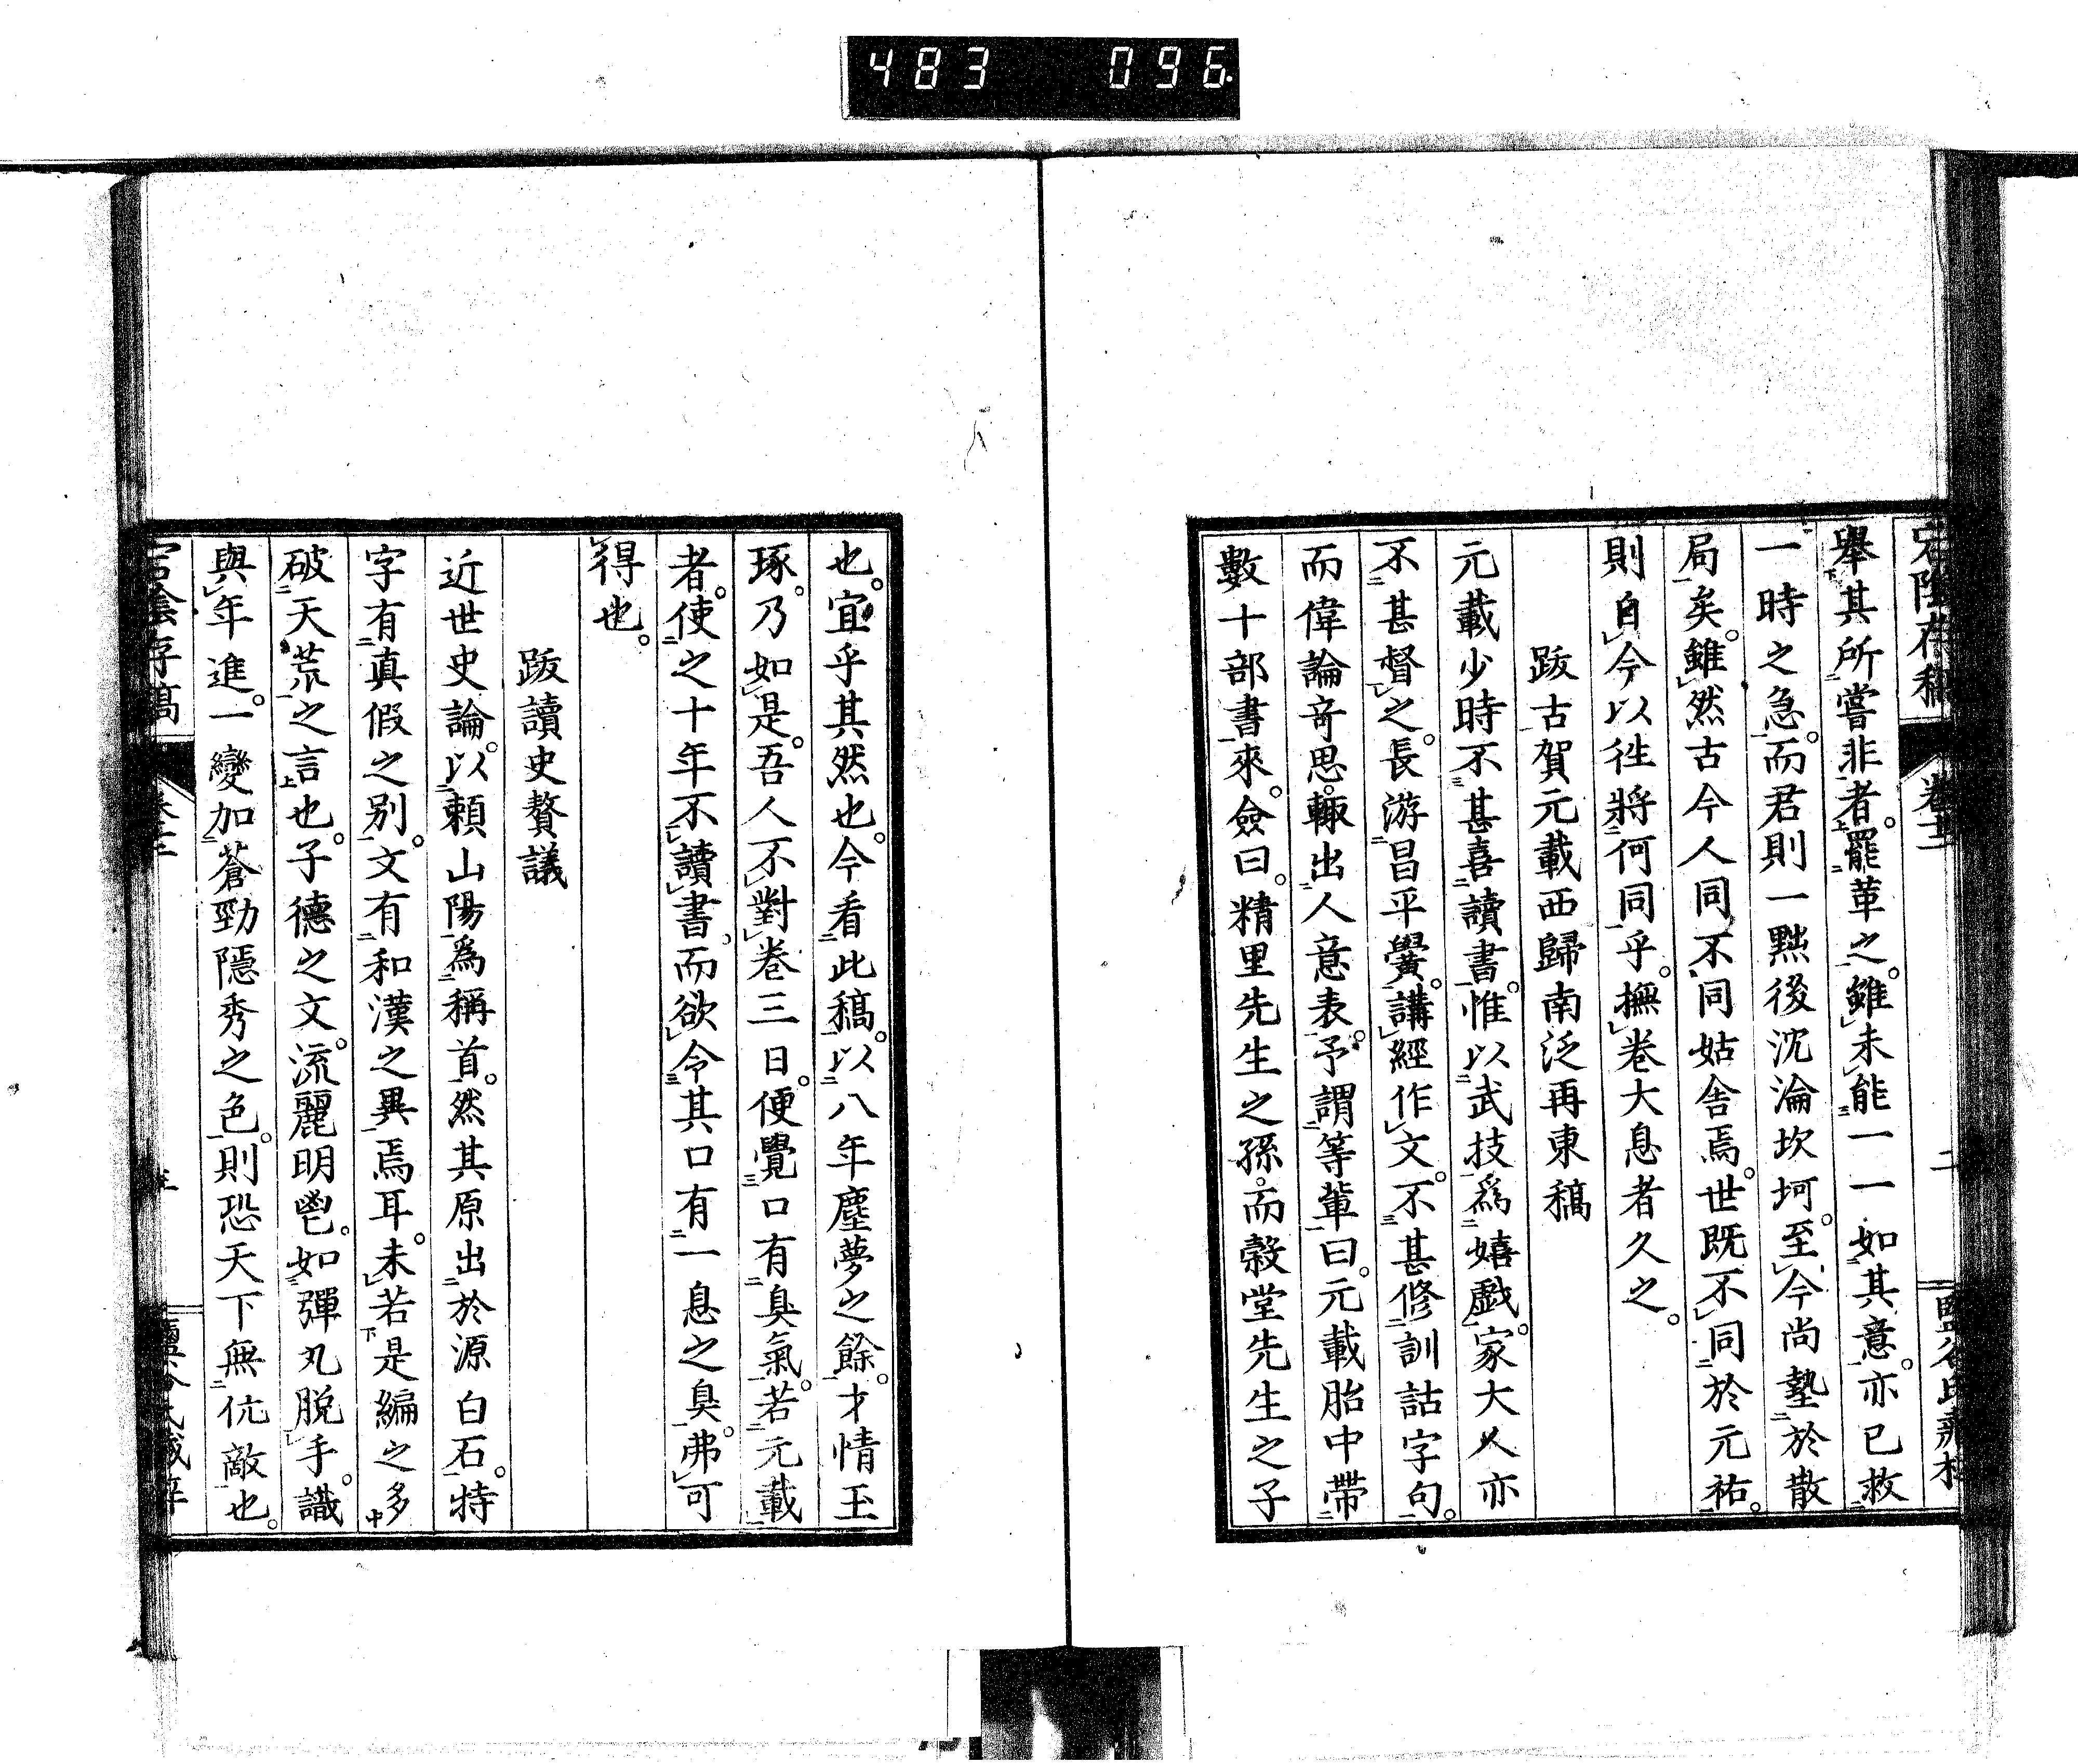 483 096
舉其所嘗非者罷革之。雖未能一一如其意。亦已救
一時之急。而君則一黜後沈淪坎坷。至今尚墊於散
局矣。雖然古今人同不同姑舎焉。世既不同於元祐。
則自今以徃將何同乎。撫卷大息者久之。
跋古賀元載西歸南泛再東稿
元載少時不甚喜讀書。惟以武技爲嬉戯。家大人亦
不甚督之。長游昌平黌。講經作文。不甚修訓詁字句。
而偉論奇思。輙出人意表。予謂等輩曰。元載胎中帶
數十部書來。僉曰。精里先生之孫。而榖堂先生之子
也。宜乎其然也。今看此稿。以八年塵夢之餘。才情玉
琢。乃如是。吾人不對卷三日。便覺口有臭氣。若元載
者。使之十年不讀書。而欲令其口有一息之臭。弗可
得也。
跋讀史贅議
近世史論。以頼山陽爲稱首。然其原出於源白石。特
字有真假之別。文有和漢之異焉耳。未若是編之多
破天荒之言也。子德之文。流麗明鬯。如彈丸脱手。識
與年進。一變加蒼勁隱秀之色。則恐天下無伉敵也。